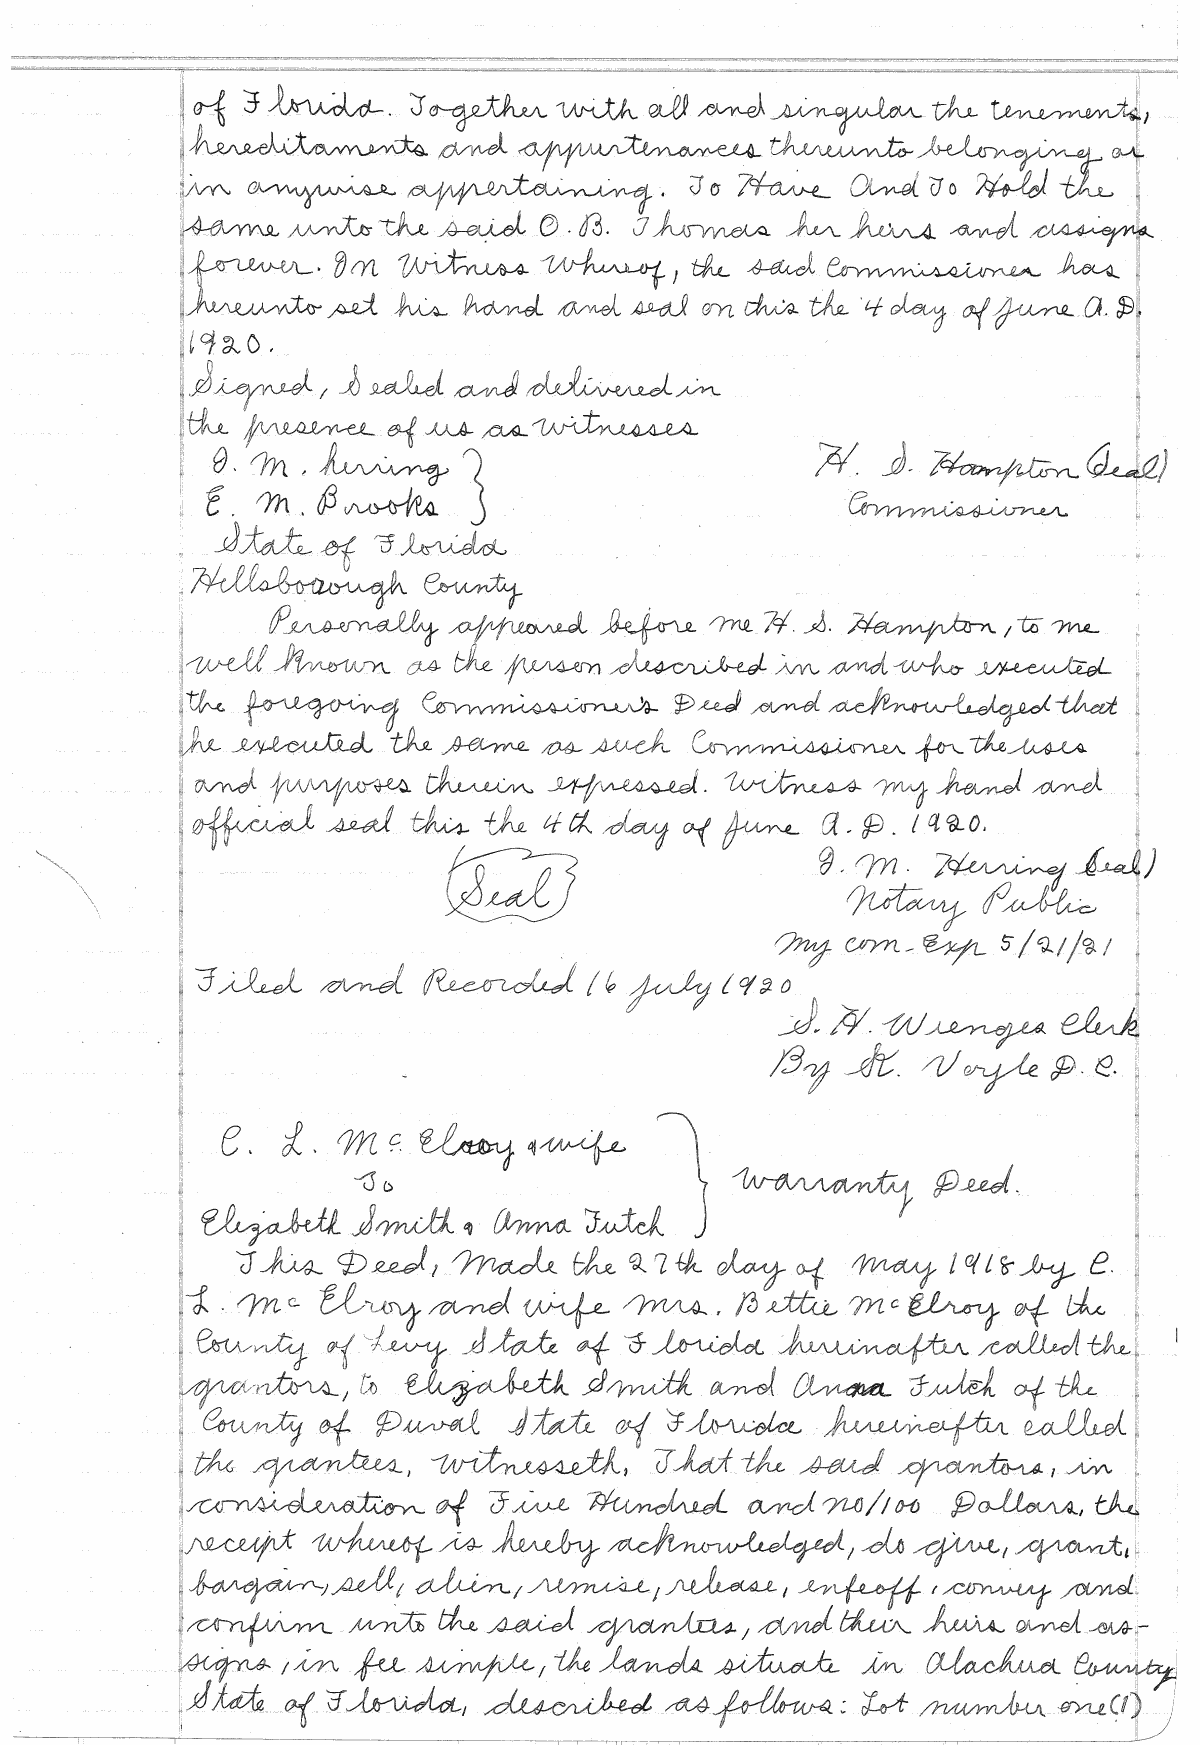 of Florida. Together with all and singular the tenements,
hereditaments and appurtenances thereunto belonging or
in anywise appertaining. To Have And To Hold the
same unto the said O. B. Thomas her heirs and assigns
forever. In Witness Whereof, the said Commissioner has
hereunto set his hand and seal on this the 4 day of June A. D.
1920.
Signed, Sealed and delivered in
the presence of us as Witnesses
I. M. herring
H. S. Hampton (Seal)
E. M. Brooks
Commissioner
State of Florida
Hillsborough County
Personally appeared before me H. S. Hampton, to me
well known as the person described in and who executed
the foregoing Commissioner's Deed and acknowledged that
he executed the same as such Commissioner for the uses
and purposes therein expressed. Witness my hand and
official seal this the 4th day of June A. D. 1920.
I. M. Herring (Seal)
(Seal)
Notary Public
My com. Exp 5/21/21
Filed and Recorded 16 July 1920
S. H. Wienges Clerk
By K. Voyle D. C.
C. L. McElroy & wife
To
Warranty Deed.
Elizabeth Smith & Anna Futch
This Deed, Made the 27th day of May 1918 by C.
L. McElroy and wife Mrs. Bettie McElroy of the
County of Levy State of Florida hereinafter called the
grantors, to Elizabeth Smith and Anna Futch of the
County of Duval State of Florida hereinafter called
the grantees, Witnesseth, That the said grantors, in
consideration of Five Hundred and no/100 Dollars, the
receipt whereof is hereby acknowledged, do give, grant,
bargain, sell, alien, remise, release, enfeoff, convey and
confirm unto the said grantees, and their heirs and as-
signs, in fee simple, the lands situate in Alachua County
State of Florida, described as follows: Lot number one (1)